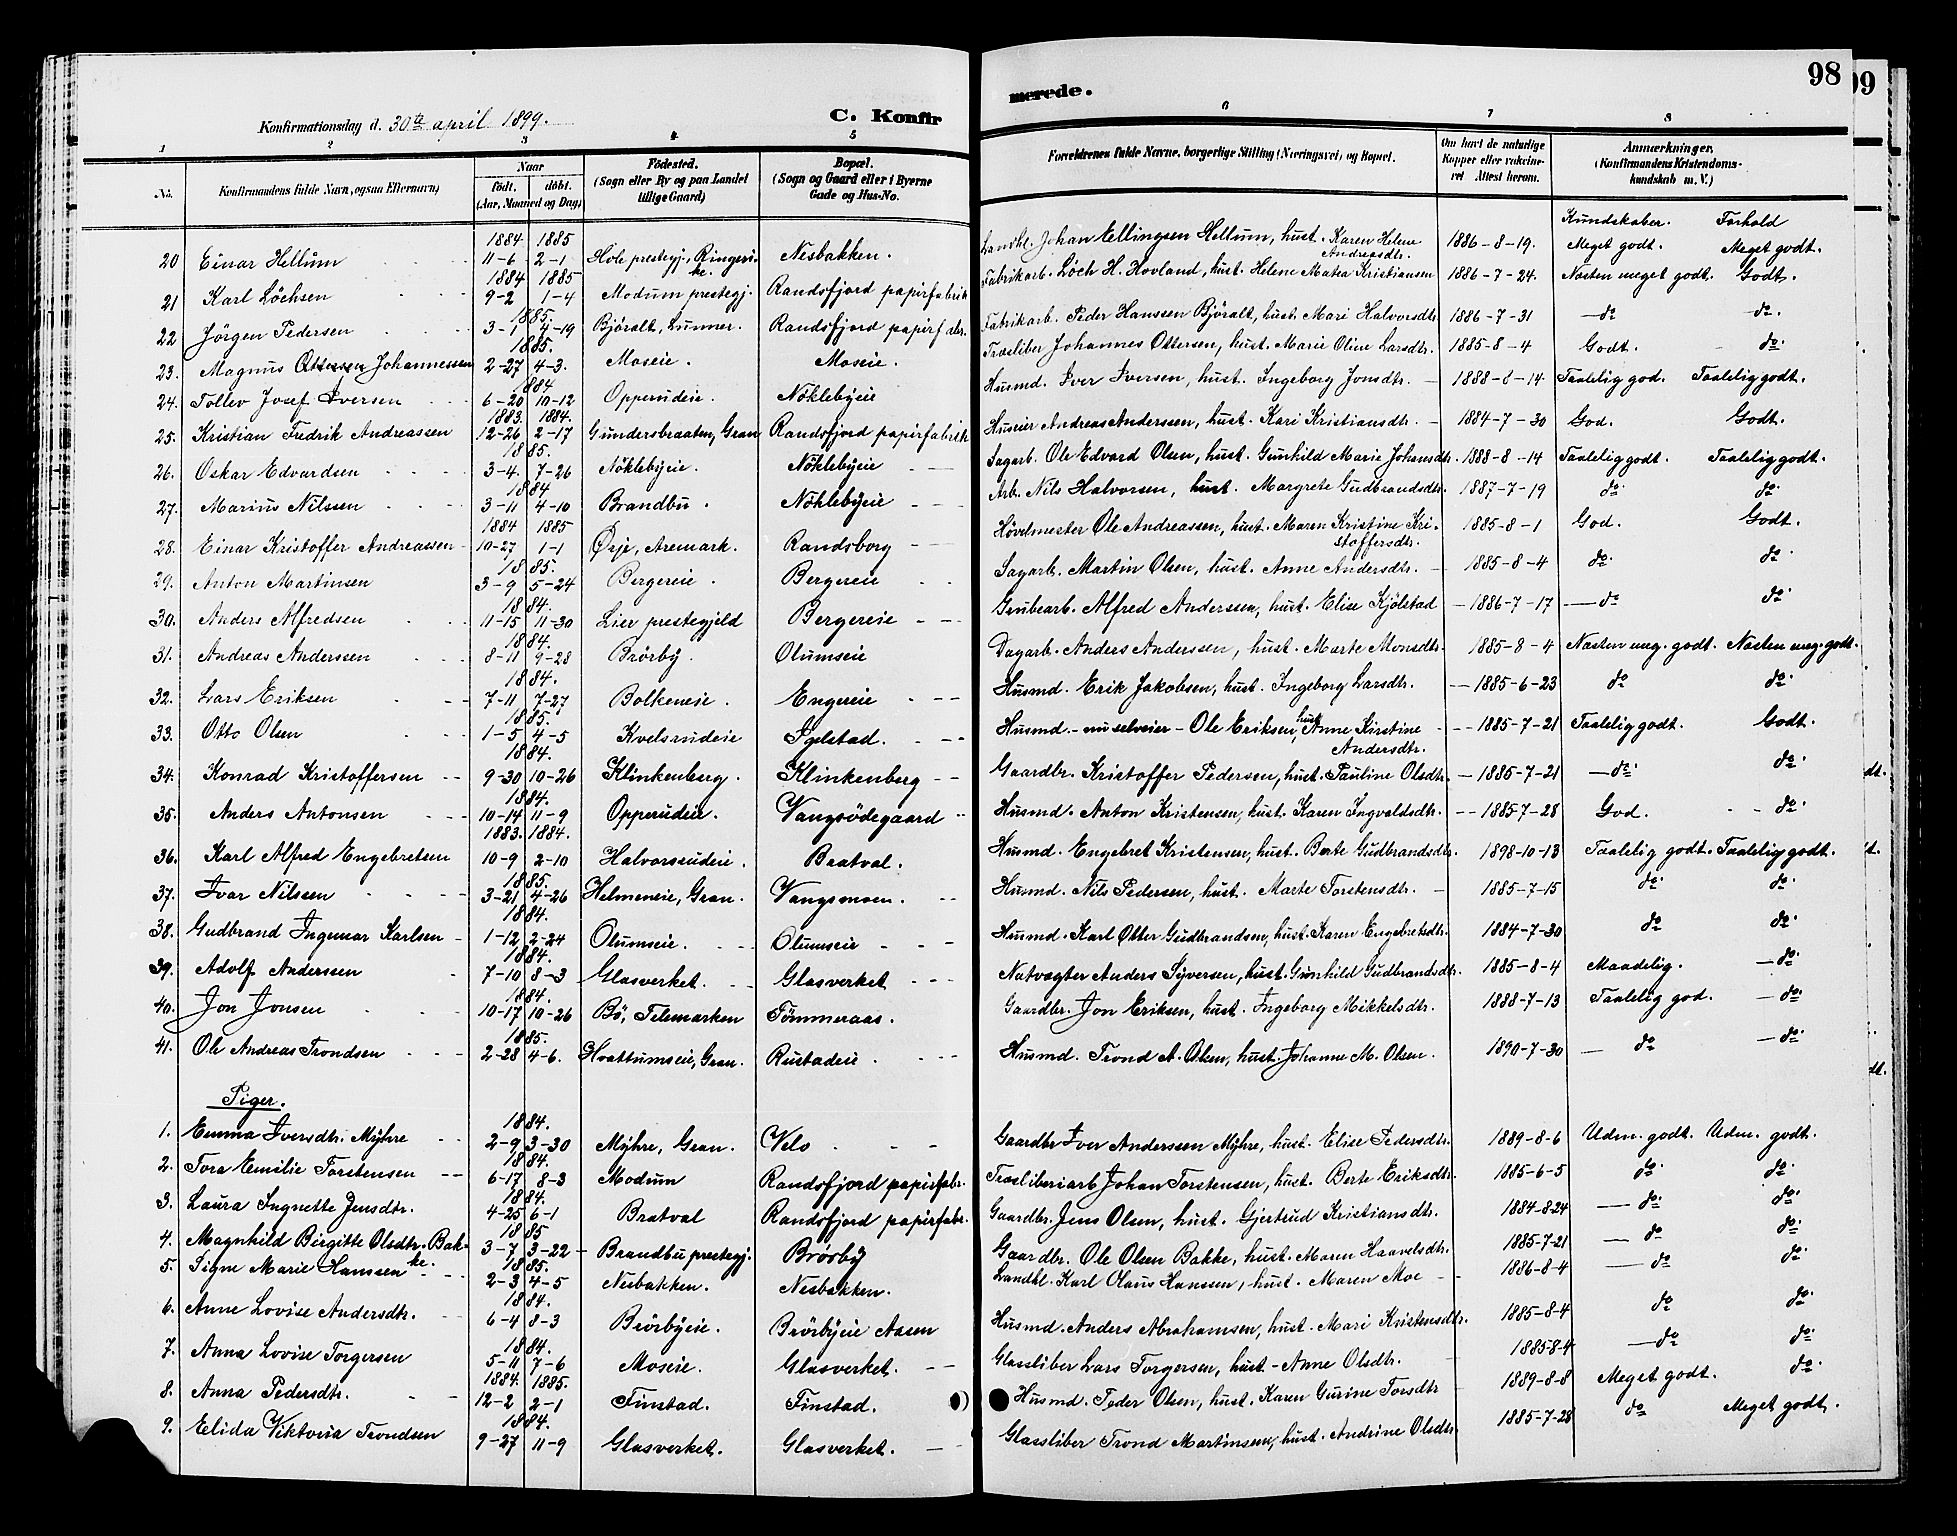 98
99
Konfirmationsdag d. 30te april 1899.
C. Konfirmerede.
1 2 3 4 5 6 7 8
No. Konfirmandens fulde Navn, ogsaa Efternavn) Naar født. døbt. (Aar, Maaned og Dag) Fødested. (Sogn eller By og paa Landet tillige Gaard) Bopæl. (Sogn og Gaard eller i Byerne Gade og Hus-No. Forældrenes fulde Navne, borgerlige Stilling (Næringsvei) og Bopæl. Om havt de naturlige Kopper eller vaccineret Attest herom. Anmærkninger, (Konfirmandens Kristendomskundskab m. V.)
Kundskaber. Forhold
20 Einar Hellum 1884 11-6 1885 2-1 Hole prestegj., Ringerike. Nesbakken. Landhl. Johan Ellingsen Hellum, hust. Karen Helene Andreasdtr. 1886-8-19. Meget godt. Meget godt.
21 Karl Löchsen 1884 9-2 1885 1-4 Modum prestegj. Randsfjord papirfabrik Fabrikarb. Löch H. Hovland, hust. Helene Matea Kristiansen 1886-7-24. Næsten meget godt. Godt.
22 Jörgen Pedersen 1885. 3-1 4-19 Björalt, Lunner. Randsfjord papirfabr. Fabrikarb. Peder Hanssen Björalt, hust. Mari Halvorsdtr. 1886-7-31 — do — do.
23. Magnus Ottersen Johannessen 1885. 2-27 4-3. Moseie. Moseie. Træsliber Johannes Ottersen, hust. Marie Oline Larsdtr. 1885-8-4 Godt. do.
24. Tollev Josef Iversen 1884 6-20 10-12 Opperudeie. Nöklebyeie Husmd. Iver Iversen, hust. Ingeborg Jonsdtr. 1888-8-14 Taalelig god. Taalelig godt.
25. Kristian Fredrik Andreassen 1883. 12-26 1884. 2-17 Gundersbraaten, Gran Randsfjord papirfabrik Huseier Andreas Anderssen, hust. Kari Kristiansdtr. 1884-7-30 God. Godt.
26. Oskar Edvardsen 1885. 3-4. 7-26 Nöklebyeie. Nöklebyeie Sagarb. Ole Edvard Olsen, hust. Gunhild Marie Johansdtr. 1888-8-14 Taalelig godt. Taalelig godt.
27. Marius Nilssen 1884 3-11 4-10 Brandbu. Nöklebyeie Arb. Nils Halvorsen, hust. Margrete Gudbrandsdtr. 1887-7-19 do. do.
28. Einar Kristoffer Andreassen 1884 10-27 1885 1-1 Ørje, Aremark. Randsborg Hövelmester Ole Andreassen, hust. Maren Kristine Kristoffersdtr. 1885-8-1 God. Godt.
29. Anton Martinsen 1885. 3-9 5-24 Bergereie. Bergereie Sagarb. Martin Olsen, hust. Anne Andersdtr. 1885-8-4 do. do.
30. Anders Alfredsen 1884. 11-15 11-30 Lier prestegjeld Bergereie Grubearb. Alfred Anderssen, hust. Elise Kjölstad 1886-7-17 — do do.
31. Andreas Anderssen 1884. 8-11 9-28 Brörby. Olumseie Dagarb. Anders Anderssen, hust. Marte Monsdtr. 1885-8-4 Næsten meg. godt. Næsten meg. godt.
32. Lars Eriksen 1884. 7-11 7-27 Bolkeneie. Engereie Husmd. Erik Jakobsen, hust. Ingeborg Larsdtr. 1885-6-23 do do.
33. Otto Olsen 1885. 1-5 4-5 Kvelsrudeie Igelstad. Husmd. - nu selveier - Ole Eriksen, hust. Anne Kirstine Andersdtr. 1885-7-21 Taalelig godt. Godt.
34. Konrad Kristoffersen 1884. 9-30 10-26 Klinkenberg. Klinkenberg Gaardbr. Kristoffer Pedersen, hust. Pauline Olsdtr. 1885-7-21 — do. do.
35. Anders Antonsen 1884. 10-14 11-9 Opperudeie. Vangsödegaard Husmd. Anton Kristensen, hust. Karen Ingvaldsdtr. 1885-7-28 God. do.
36. Karl Alfred Engebretsen 1883. 10-9 1884. 2-10 Halvorsrudeie. Bratval. Husmd. Engebret Kristensen, hust. Berte Gudbrandsdtr. 1898-10-13 Taalelig godt. Taalelig godt.
37. Ivar Nilssen 1885. 3-21 4-26 Helmeneie, Gran. Vangsmoen. Husmd. Nils Pedersen, hust. Marte Torstensdtr. 1885-7-15 do. do.
38. Gudbrand Ingemar Karlsen 1884. 1-12 2-24 Olumseie. Olumseie Husmd. Karl Otter Gudbrandsen, hust. Karen Engebretsdtr. 1884-7-30 do do.
39. Adolf Anderssen 1884. 7-10 8-3 Glasverket. Glasverket Natvægter Anders Syversen, hust. Gunhild Gudbrandsdtr. 1885-8-4 Maadelig. — do.
40. Jon Jonsen 1884. 10-17 10-26 Bö, Telemarken Tömmeraas. Gaardbr. Jon Eriksen, hust. Ingeborg Mikkelsdtr. 1888-7-13 Taalelig god. — do.
41. Ole Andreas Trondsen 1885. 2-28 4-6. Hvattumseie, Gran. Rustadeie Husmd. Trond A. Olsen, hust. Johanne M. Olsen. 1890-7-30 — do — do.
Piger.
1. Emma Iversdtr. Myhre 1884. 2-9 3-30 Myhre, Gran. Velo Gaardbr Iver Anderssen Myhre, hust. Elise Pedersdtr. 1889-8-6 Udm. godt. Udm. godt.
2. Tora Emilie Torstensen 1884. 6-17 8-3 Modum Randsfjord papirfabr. Træsliberiarb. Johan Torstensen, hust. Berte Eriksdtr. 1885-6-5 do. do.
3. Laura Ingnette Jensdtr. 1884. 4-25 6-1 Bratval Randsfjord papirfabr. Gaardbr. Jens Olsen, hust. Gjertrud Kristiansdtr. 1884-8-24 — do. do.
4. Magnhild Birgitte Olsdtr. Bakke. 1885 3-7 3-22 Brandbu prestegj. Brörby Gaardbr. Ole Olsen Bakke, hust. Maren Haavelsdtr. 1885-7-21 — do do.
5. Signe Marie Hanssen 1885. 2-3 4-5 Nesbakken. Nesbakken. Landhl. Karl Olaus Hanssen, hust. Maren Moe 1886-8-4 — do do.
6. Anne Lovise Andersdtr. 1884. 6-4 8-3 Brörbyeie. Brörbyeie Aasen Husmd. Anders Abrahamsen, hust. Mari Kristensdtr. 1885-8-4 do do.
7. Anna Lovise Torgersen 1884. 5-11 7-6 Moseie. Glasverket. Glassliber Lars Torgersen, hust. Anne Olsdtr. 1885-8-4 — do do.
8. Anna Pedersdtr. 1884. 12-2 1885. 2-1 Finstad. Finstad. Husmd. Peder Olsen, hust. Karen Gurine Torsdtr 1889-8-8 Meget godt. do.
9. Elida Viktoria Trondsen 1884. 9-27 11-9 Glasverket. Glasverket. Glassliber Trond Martinsen, hust. Andrine Olsdtr. 1885-7-28 do Meget godt.